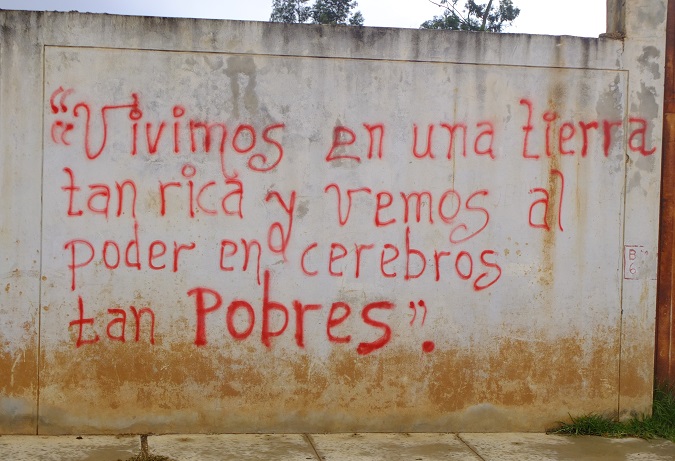 "Vivimos en una tierra
tan rica y vemos al
poder en cerebros
tan Pobres".
B
6